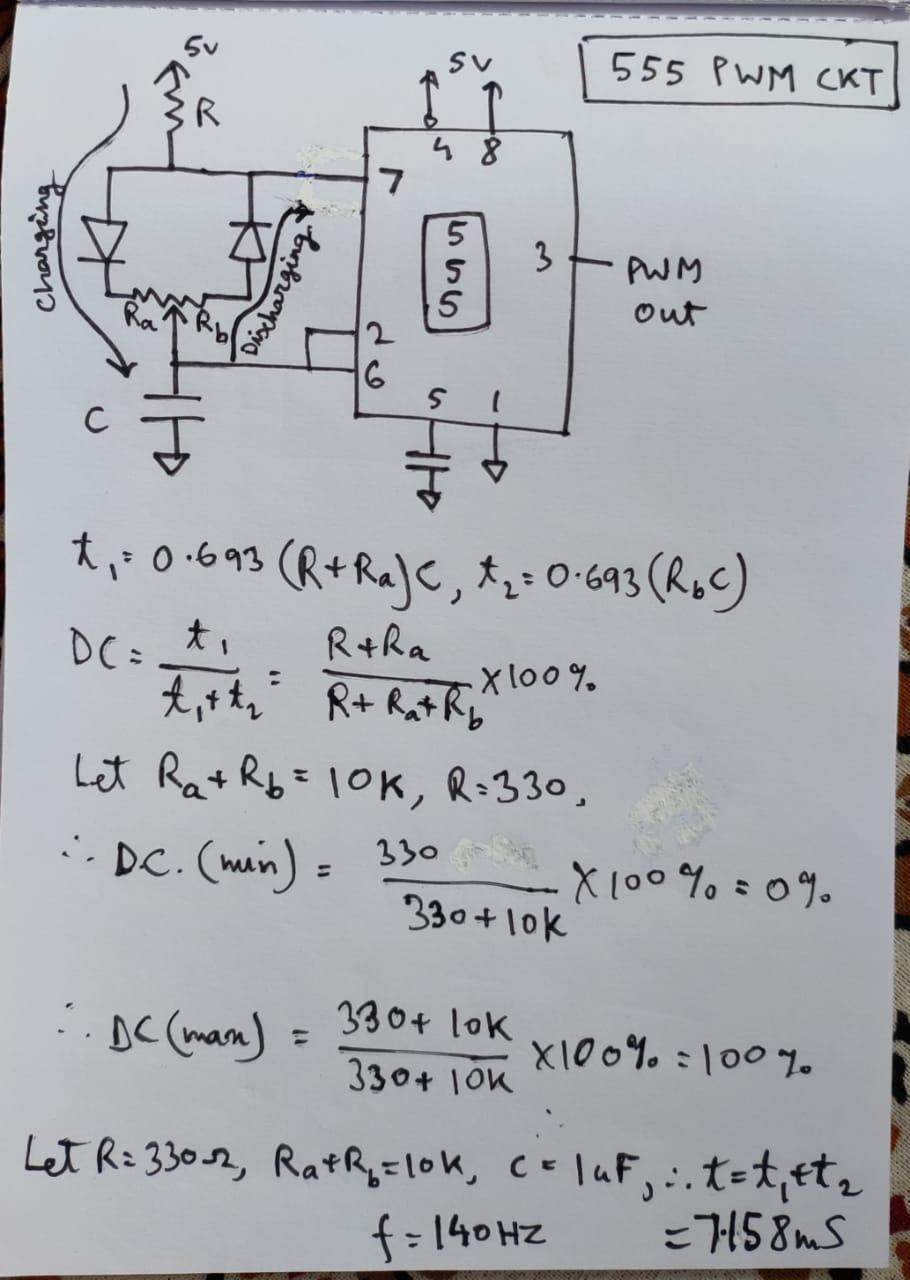 555 PWM CKT
5v
R
5v
4 8
7
Charging
Discharging
5
5
5
3
PWM
out
Ra
Rb
2
6
5 1
C
t₁= 0.693 (R+Ra)C, t₂= 0.693(RbC)
DC= t₁/(t₁+t₂) = (R+Ra)/(R+Ra+Rb) X100%
Let Ra+Rb= 10K, R=330,
∴ D.C.(min) = 330/(330+10K) X100% = 0%
∴ DC(max) = (330+10K)/(330+10K) X100% = 100%
Let R=330Ω, Ra+Rb=10K, C = 1uF, ∴ t=t₁+t₂
f=140HZ =7.158mS